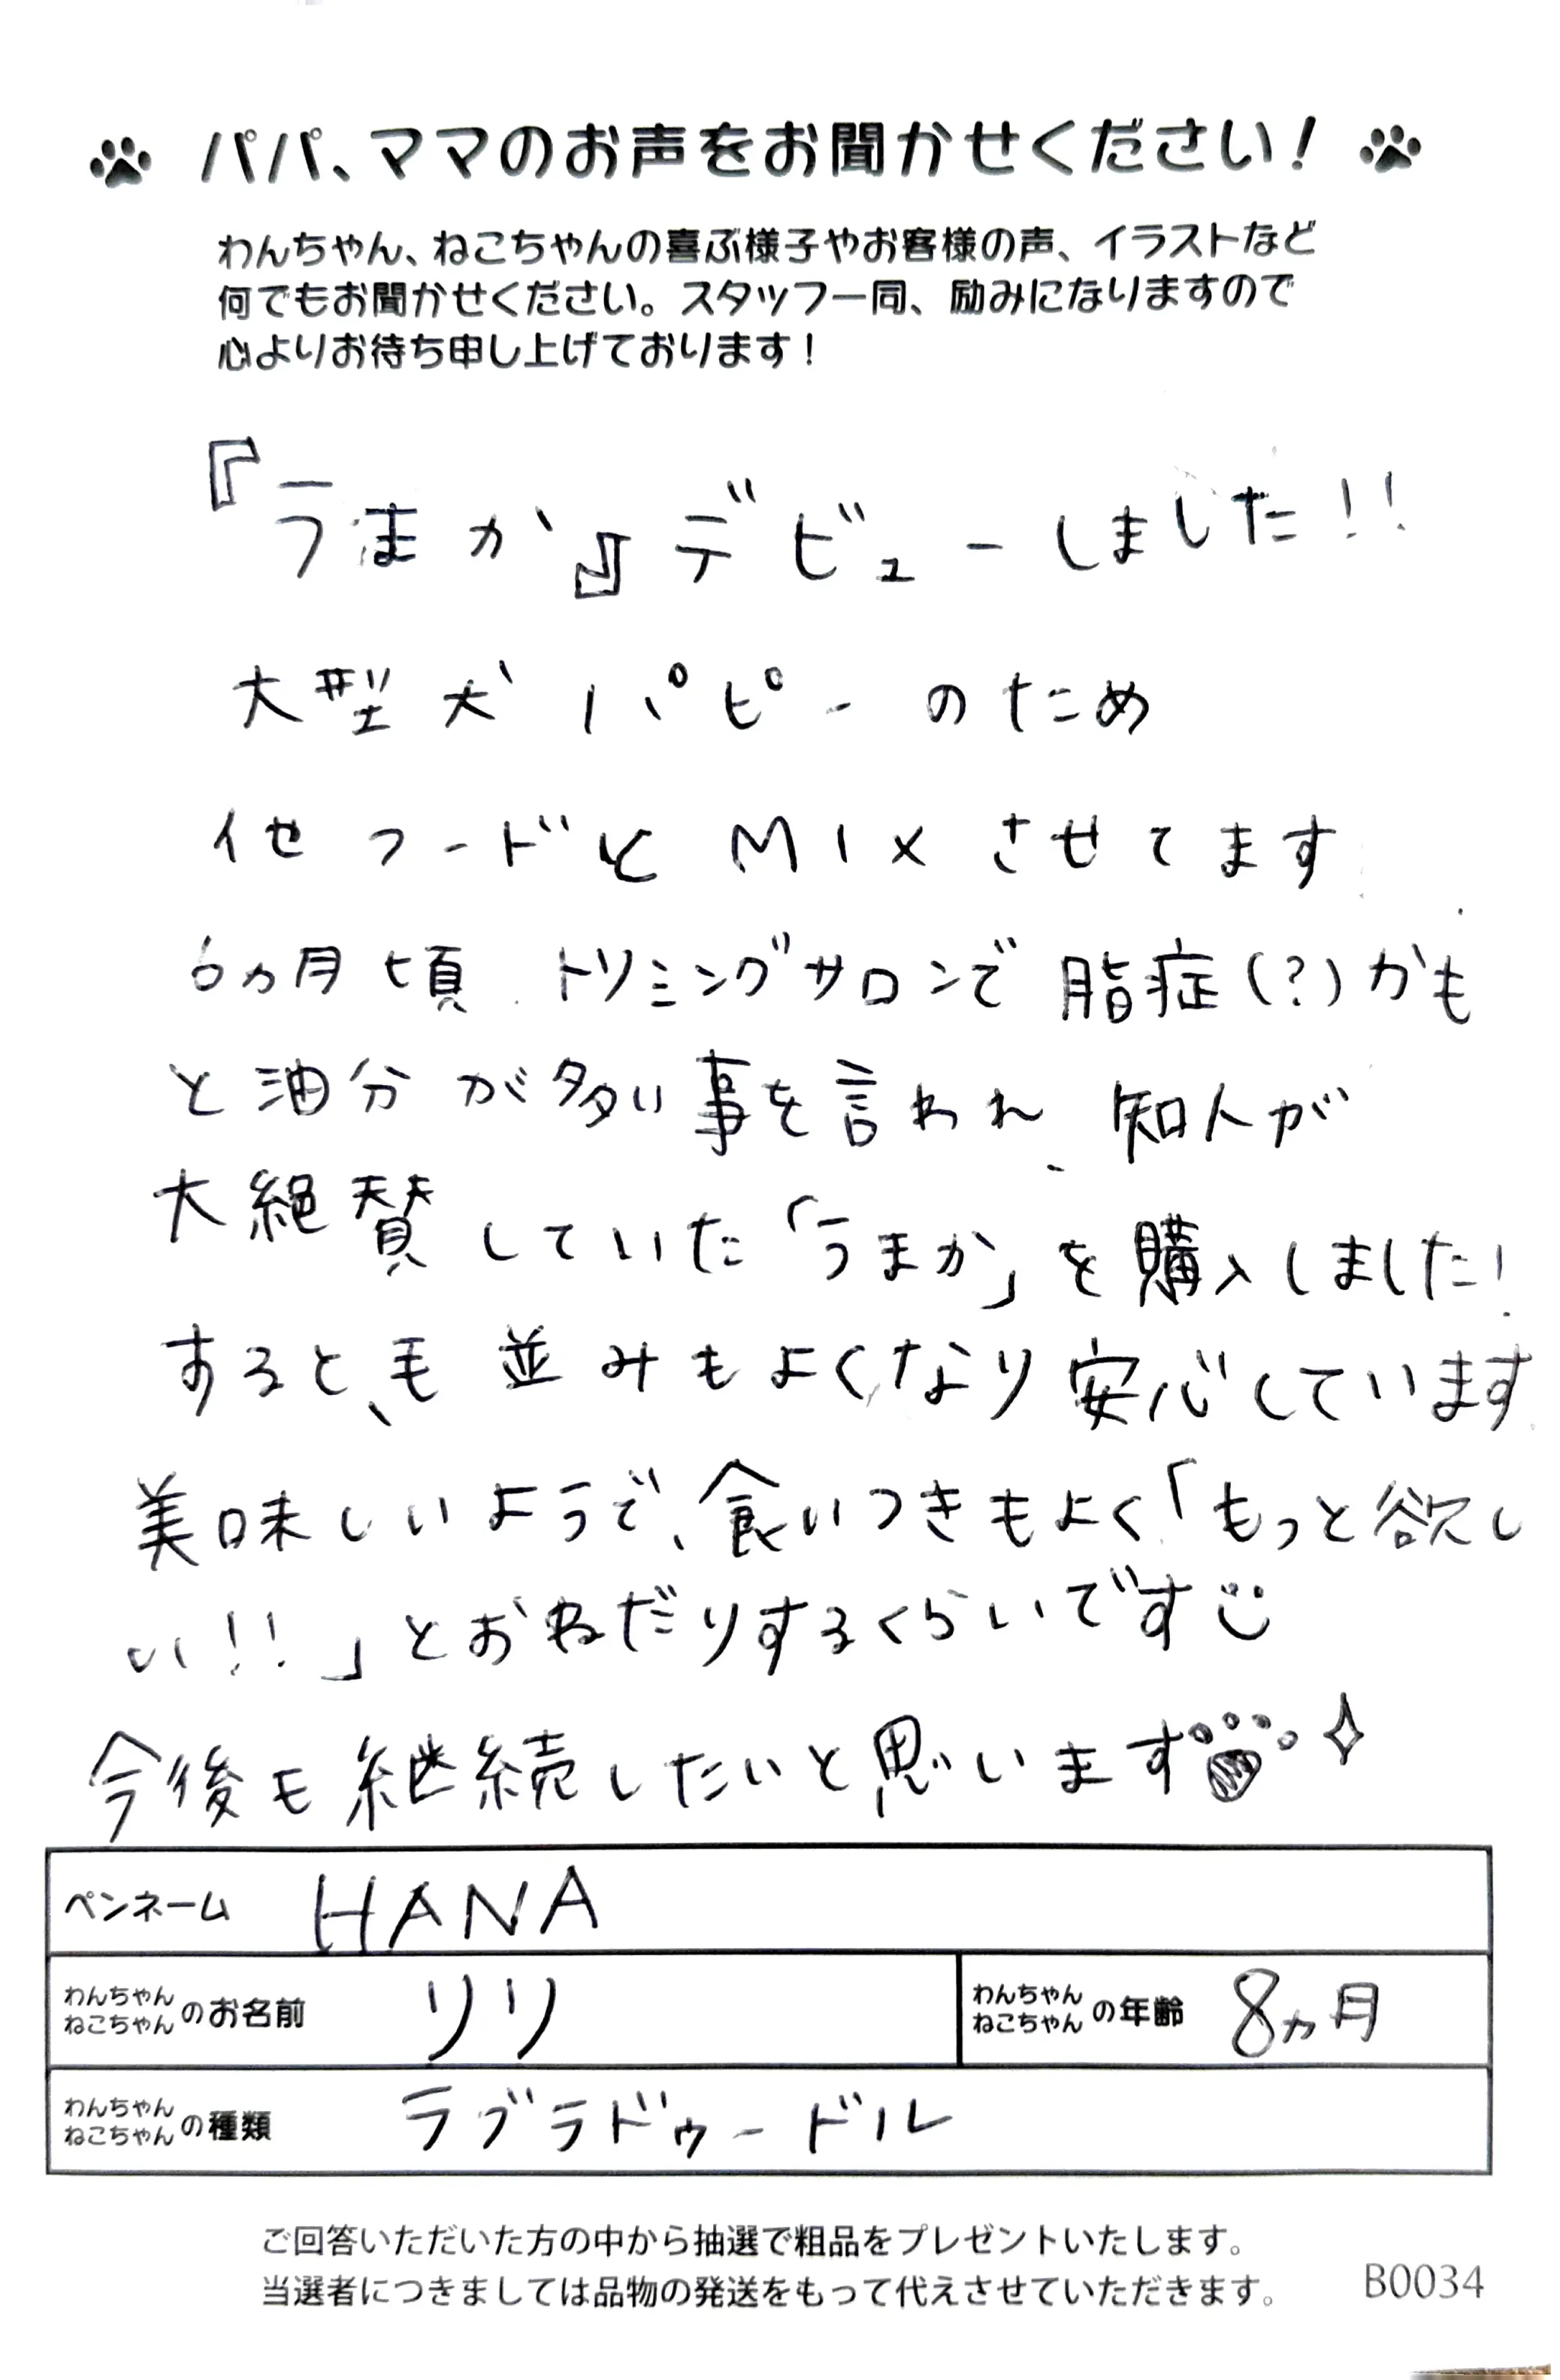 パパ、ママのお声をお聞かせください！
わんちゃん、ねこちゃんの喜ぶ様子やお客様の声、イラストなど
何でもお聞かせください。スタッフ一同、励みになりますので
心よりお待ち申し上げております！
『うまか』デビューしました!!
大型犬パピーのため
他フードとMIXさせてます
6ヵ月頃トリミングサロンで脂症(?)かも
と油分が多い事を言われ、知人が
大絶賛していた「うまか」を購入しました!
すると、毛並みもよくなり安心しています
美味しいようで、食いつきもよく「もっと欲し
い!!」とおねだりするくらいです
今後も継続したいと思います
ペンネーム HANA
わんちゃん ねこちゃん のお名前 リリ わんちゃん ねこちゃん の年齢 8ヵ月
わんちゃん ねこちゃん の種類 ラブラドゥードル
ご回答いただいた方の中から抽選で粗品をプレゼントいたします。
当選者につきましては品物の発送をもって代えさせていただきます。 B0034